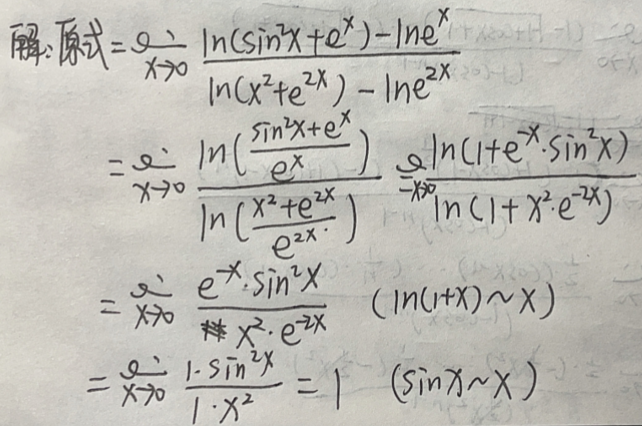 解：原式 = lim x→0 (ln(sin²x+e^x) - lne^x) / (ln(x²+e^{2x}) - lne^{2x})
= lim x→0 ln((sin²x+e^x)/e^x) / ln((x²+e^{2x})/e^{2x}) = lim x→0 ln(1+e^{-x}·sin²x) / ln(1+x²·e^{-2x})
= lim x→0 (e^{-x}·sin²x) / (x²·e^{-2x}) (ln(1+x)~x)
= lim x→0 (1·sin²x) / (1·x²) = 1 (sinx~x)